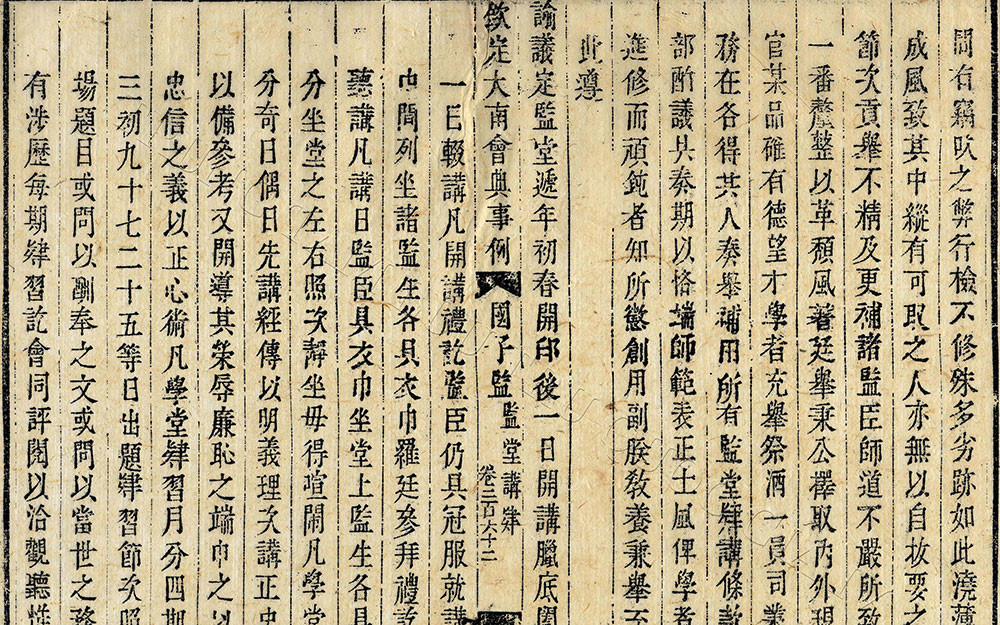 間有竊吹之弊行檢不修殊多劣跡如此澆薄
成風致其中縱有可取之人亦無以自拔要之
節次貢舉不精及更補諸監臣師道不嚴所致
一番釐整以革頹風著廷舉秉公擇取內外現
官某品確有德望才學者充舉祭酒一員司業
務在各得其人奏舉補用所有監堂肄講條款
部酌議具奏期以恪端師範表正士風俾學者
進修而頑鈍者知所懲創用副朕敎養兼舉至
此遵
諭議定監堂遞年初春開印後一日開講臘底
欽定大南會典事例 國子監 監堂講肄 卷二百六十二
一日輟講凡開講禮訖監臣仍具冠服就講
中間列坐諸監生各具衣巾羅廷參拜禮訖
聽講凡講日監臣具衣巾坐堂上監生各具
分坐堂之左右照次靜坐毋得喧鬧凡學堂
分奇日偶日先講經傳以明義理次講正史
以備參考又開導其榮辱廉恥之端申之以
忠信之義以正心術凡學堂肄習月分四期
三初九十七二十五等日出題肄習節次照
場題目或問以酬奉之文或問以當世之務
有涉歷每期肄習訖會同評閱以洽觀聽惟